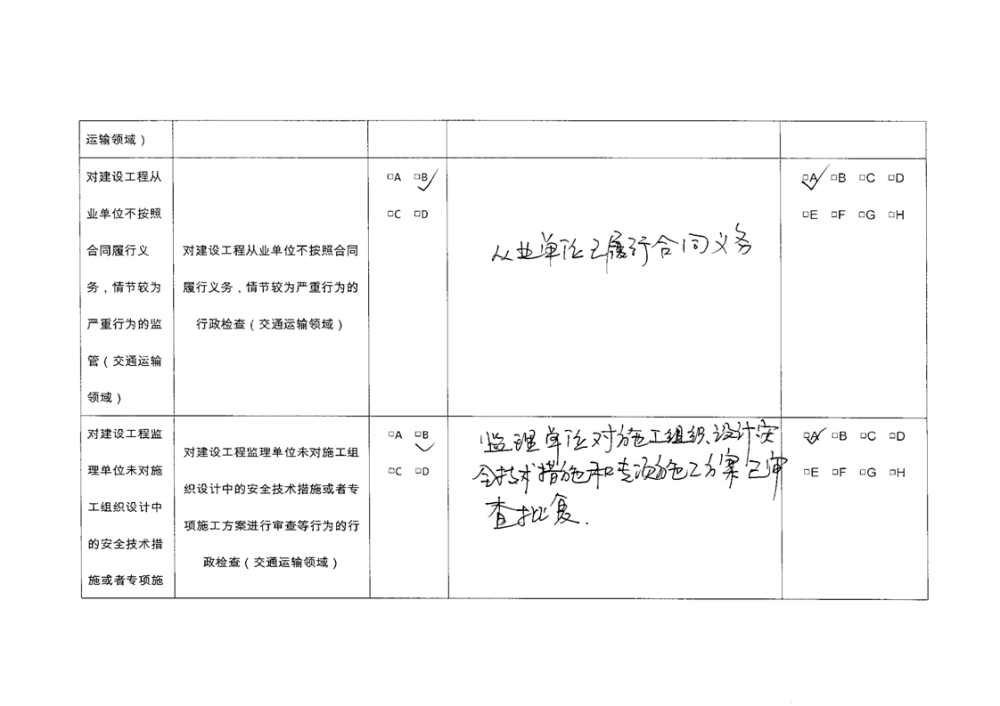 运输领域）
对建设工程从
业单位不按照
合同履行义
务，情节较为
严重行为的监
管（交通运输
领域）
对建设工程从业单位不按照合同
履行义务，情节较为严重行为的
行政检查（交通运输领域）
□A □B✓
□C □D
从业单位已履行合同义务
□A✓ □B □C □D
□E □F □G □H
对建设工程监
理单位未对施
工组织设计中
的安全技术措
施或者专项施
对建设工程监理单位未对施工组
织设计中的安全技术措施或者专
项施工方案进行审查等行为的行
政检查（交通运输领域）
□A □B✓
□C □D
监理单位对施工组织设计安
全技术措施和专项施工方案已审
查批复.
□A✓ □B □C □D
□E □F □G □H